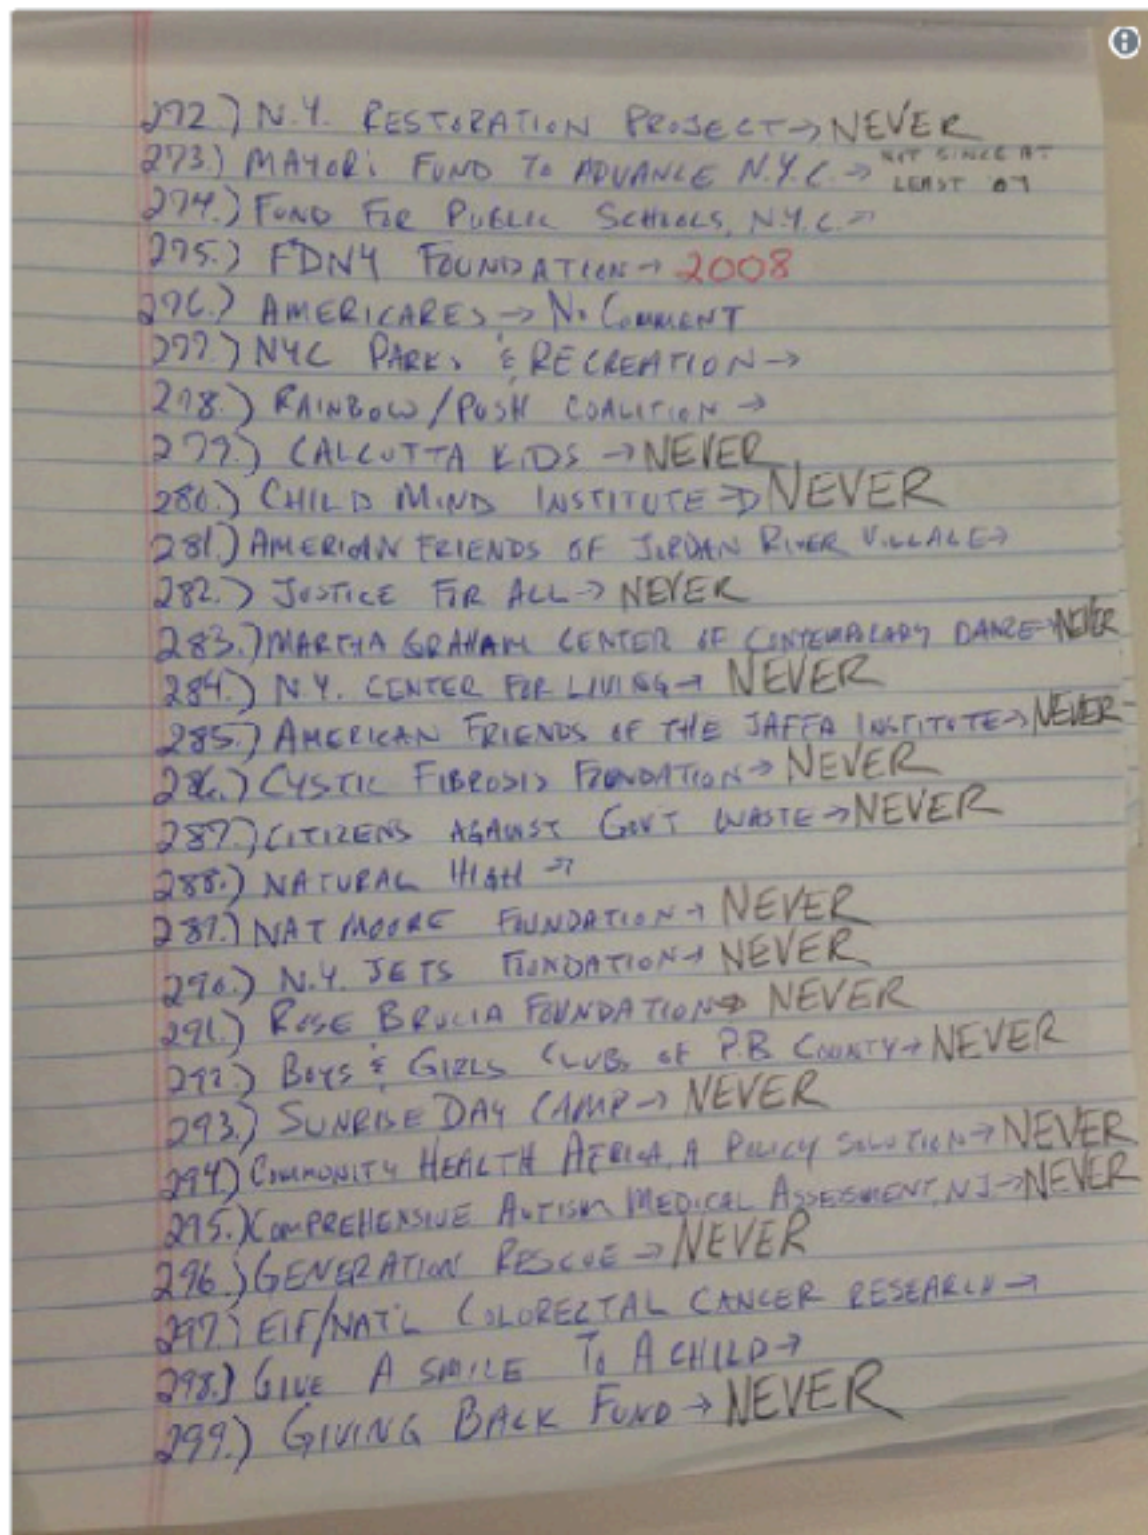 272.) N.Y. RESTORATION PROJECT → NEVER
273.) MAYOR'S FUND TO ADVANCE N.Y.C. → NOT SINCE AT LEAST '07
274.) FUND FOR PUBLIC SCHOOLS, N.Y.C. →
275.) FDNY FOUNDATION → 2008
276.) AMERICARES → NO COMMENT
277.) NYC PARKS & RECREATION →
278.) RAINBOW/PUSH COALITION →
279.) CALCUTTA KIDS → NEVER
280.) CHILD MIND INSTITUTE → NEVER
281.) AMERICAN FRIENDS OF JORDAN RIVER VILLAGE →
282.) JUSTICE FOR ALL → NEVER
283.) MARTHA GRAHAM CENTER OF CONTEMPORARY DANCE → NEVER
284.) N.Y. CENTER FOR LIVING → NEVER
285.) AMERICAN FRIENDS OF THE JAFFA INSTITUTE → NEVER
286.) CYSTIC FIBROSIS FOUNDATION → NEVER
287.) CITIZENS AGAINST GOV'T WASTE → NEVER
288.) NATURAL HIGH →
289.) NAT MOORE FOUNDATION → NEVER
290.) N.Y. JETS FOUNDATION → NEVER
291.) ROSE BRUCIA FOUNDATION → NEVER
292.) BOYS & GIRLS CLUBS OF P.B. COUNTY → NEVER
293.) SUNRISE DAY CAMP → NEVER
294.) COMMUNITY HEALTH AFRICA, A POLICY SOLUTION → NEVER
295.) COMPREHENSIVE AUTISM MEDICAL ASSESSMENT, NJ → NEVER
296.) GENERATION RESCUE → NEVER
297.) EIF/NAT'L COLORECTAL CANCER RESEARCH →
298.) GIVE A SMILE TO A CHILD →
299.) GIVING BACK FUND → NEVER